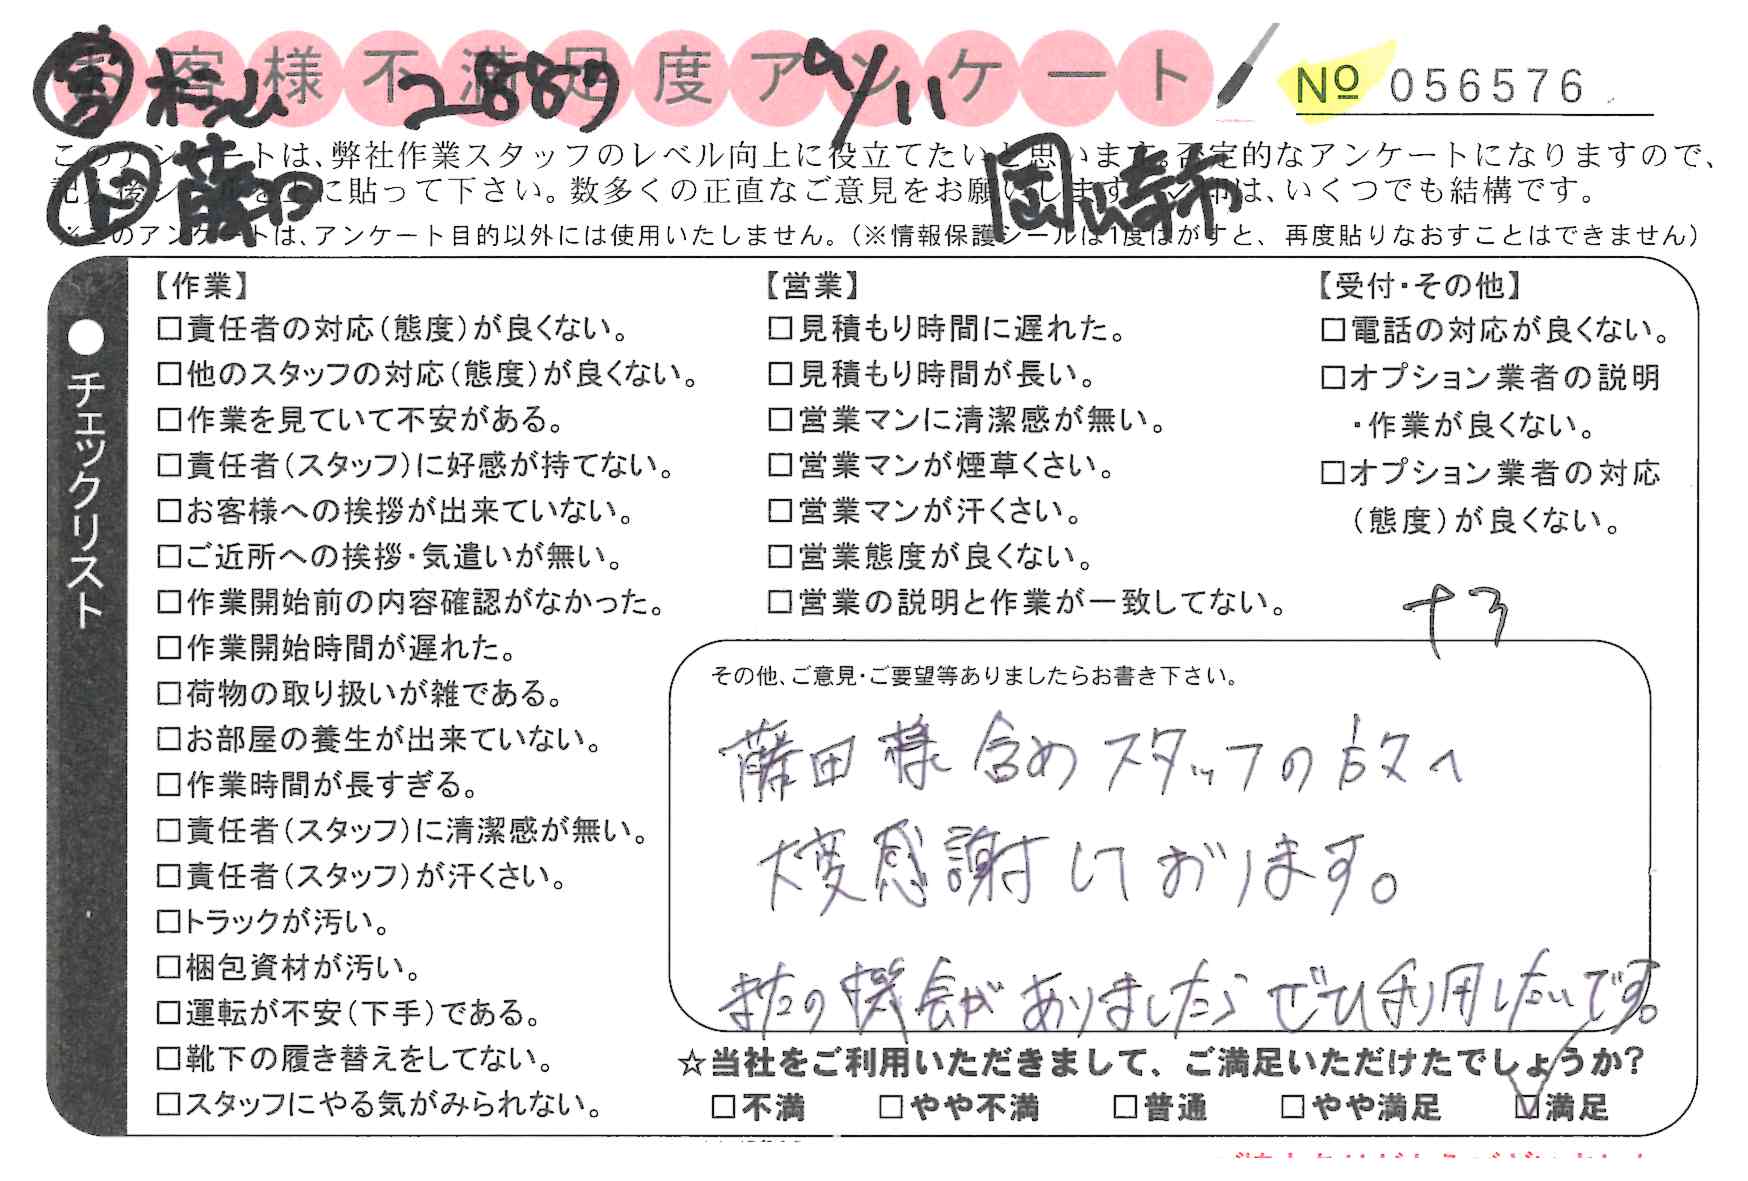 お客様不満足度アンケート
No 056576
営 2887 9/11
このアンケートは、弊社作業スタッフのレベル向上に役立てたいと思います。否定的なアンケートになりますので、
記入後シールを上に貼って下さい。数多くの正直なご意見をお願いします。レ印は、いくつでも結構です。
藤田 岡崎市
※このアンケートは、アンケート目的以外には使用いたしません。(※情報保護シールは1度はがすと、再度貼りなおすことはできません)
●チェックリスト
【作業】
□責任者の対応(態度)が良くない。
□他のスタッフの対応(態度)が良くない。
□作業を見ていて不安がある。
□責任者(スタッフ)に好感が持てない。
□お客様への挨拶が出来ていない。
□ご近所への挨拶・気遣いが無い。
□作業開始前の内容確認がなかった。
□作業開始時間が遅れた。
□荷物の取り扱いが雑である。
□お部屋の養生が出来ていない。
□作業時間が長すぎる。
□責任者(スタッフ)に清潔感が無い。
□責任者(スタッフ)が汗くさい。
□トラックが汚い。
□梱包資材が汚い。
□運転が不安(下手)である。
□靴下の履き替えをしてない。
□スタッフにやる気がみられない。
【営業】
□見積もり時間に遅れた。
□見積もり時間が長い。
□営業マンに清潔感が無い。
□営業マンが煙草くさい。
□営業マンが汗くさい。
□営業態度が良くない。
□営業の説明と作業が一致してない。
【受付・その他】
□電話の対応が良くない。
□オプション業者の説明
・作業が良くない。
□オプション業者の対応
(態度)が良くない。
+3
その他、ご意見・ご要望等ありましたらお書き下さい。
藤田様含めスタッフの方々へ
大変感謝しております。
またの機会がありましたらぜひ利用したいです。
☆当社をご利用いただきまして、ご満足いただけたでしょうか?
□不満 □やや不満 □普通 □やや満足 ☑満足